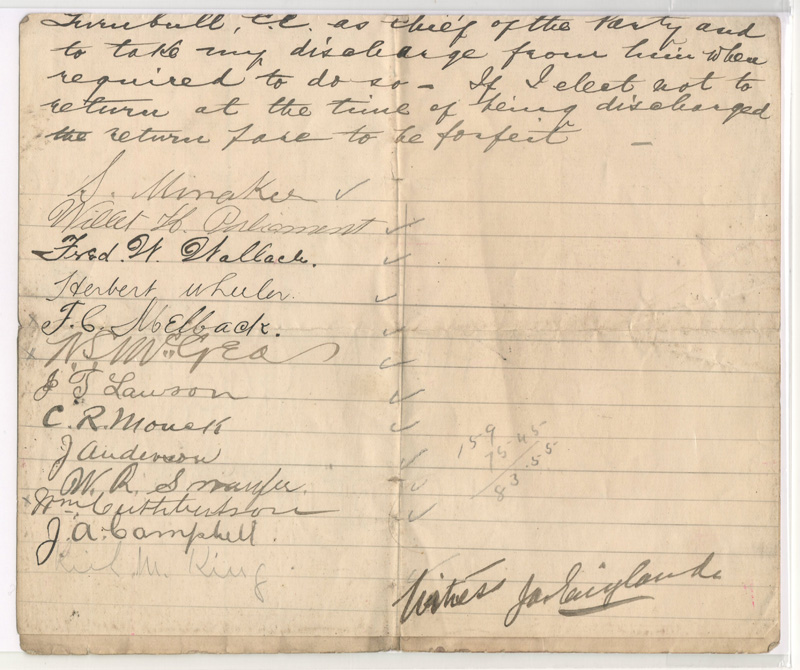 Turnbull, C.E. as chief of the Party and
to take my discharge from him when
required to do so – If I elect not to
return at the time of being discharged
the return fare to be forfeit –
S. Minaker ✓
Willet H. Parliament ✓
Fred. W. Wallace. ✓
Herbert Wheeler. ✓
T. C. ✓
x N. S. McGea ✓
J. T. Lawson ✓
C. R. Monck ✓
J Anderson ✓
W. R. ✓
x Wm Cuthbertson ✓
J. A. Campbell.
M. King
159
75.45
83.55
Witness Jas England